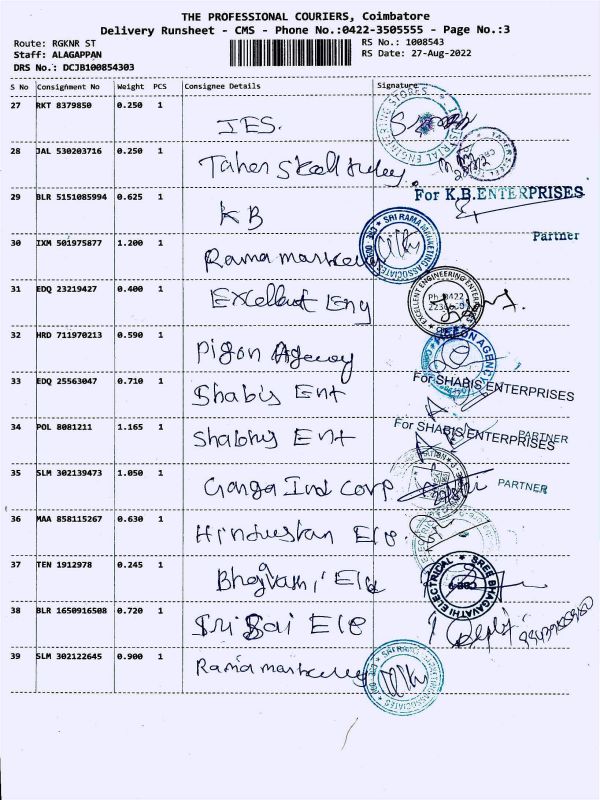 THE PROFESSIONAL COURIERS, Coimbatore
Delivery Runsheet - CMS - Phone No.:0422-3505555 - Page No.:3
Route: RGKNR ST
RS No.: 1008543
Staff: ALAGAPPAN
RS Date: 27-Aug-2022
DRS No.: DCJB100854303
S No Consignment No Weight PCS Consignee Details Signature
27 RKT 8379850 0.250 1 IES.
28 JAL 530203716 0.250 1 Taher Steel
29 BLR 5151085994 0.625 1 KB For K.B.ENTERPRISES
Partner
30 IXM 501975877 1.200 1 Rama SRI RAMA MARKETING ASSOCIATES
31 EDQ 23219427 0.400 1 Excellent Eng EXCELLENT ENGINEERING ENTERPRISES
32 HRD 711970213 0.590 1 Pigon Agency PIGEON AGENCY
33 EDQ 25563047 0.710 1 Shabis Ent For SHABIS ENTERPRISES
PARTNER
34 POL 8081211 1.165 1 Shabhis Ent For SHABIS ENTERPRISES
PARTNER
35 SLM 302139473 1.050 1 Ganga Ind Corp
36 MAA 858115267 0.630 1 Hindustan Ele
37 TEN 1912978 0.245 1 Ele SREE BHAGAVATHI ELECTRICAL
38 BLR 1650916508 0.720 1 Sri Sai Ele
39 SLM 302122645 0.900 1 Rama SRI RAMA MARKETING ASSOCIATES